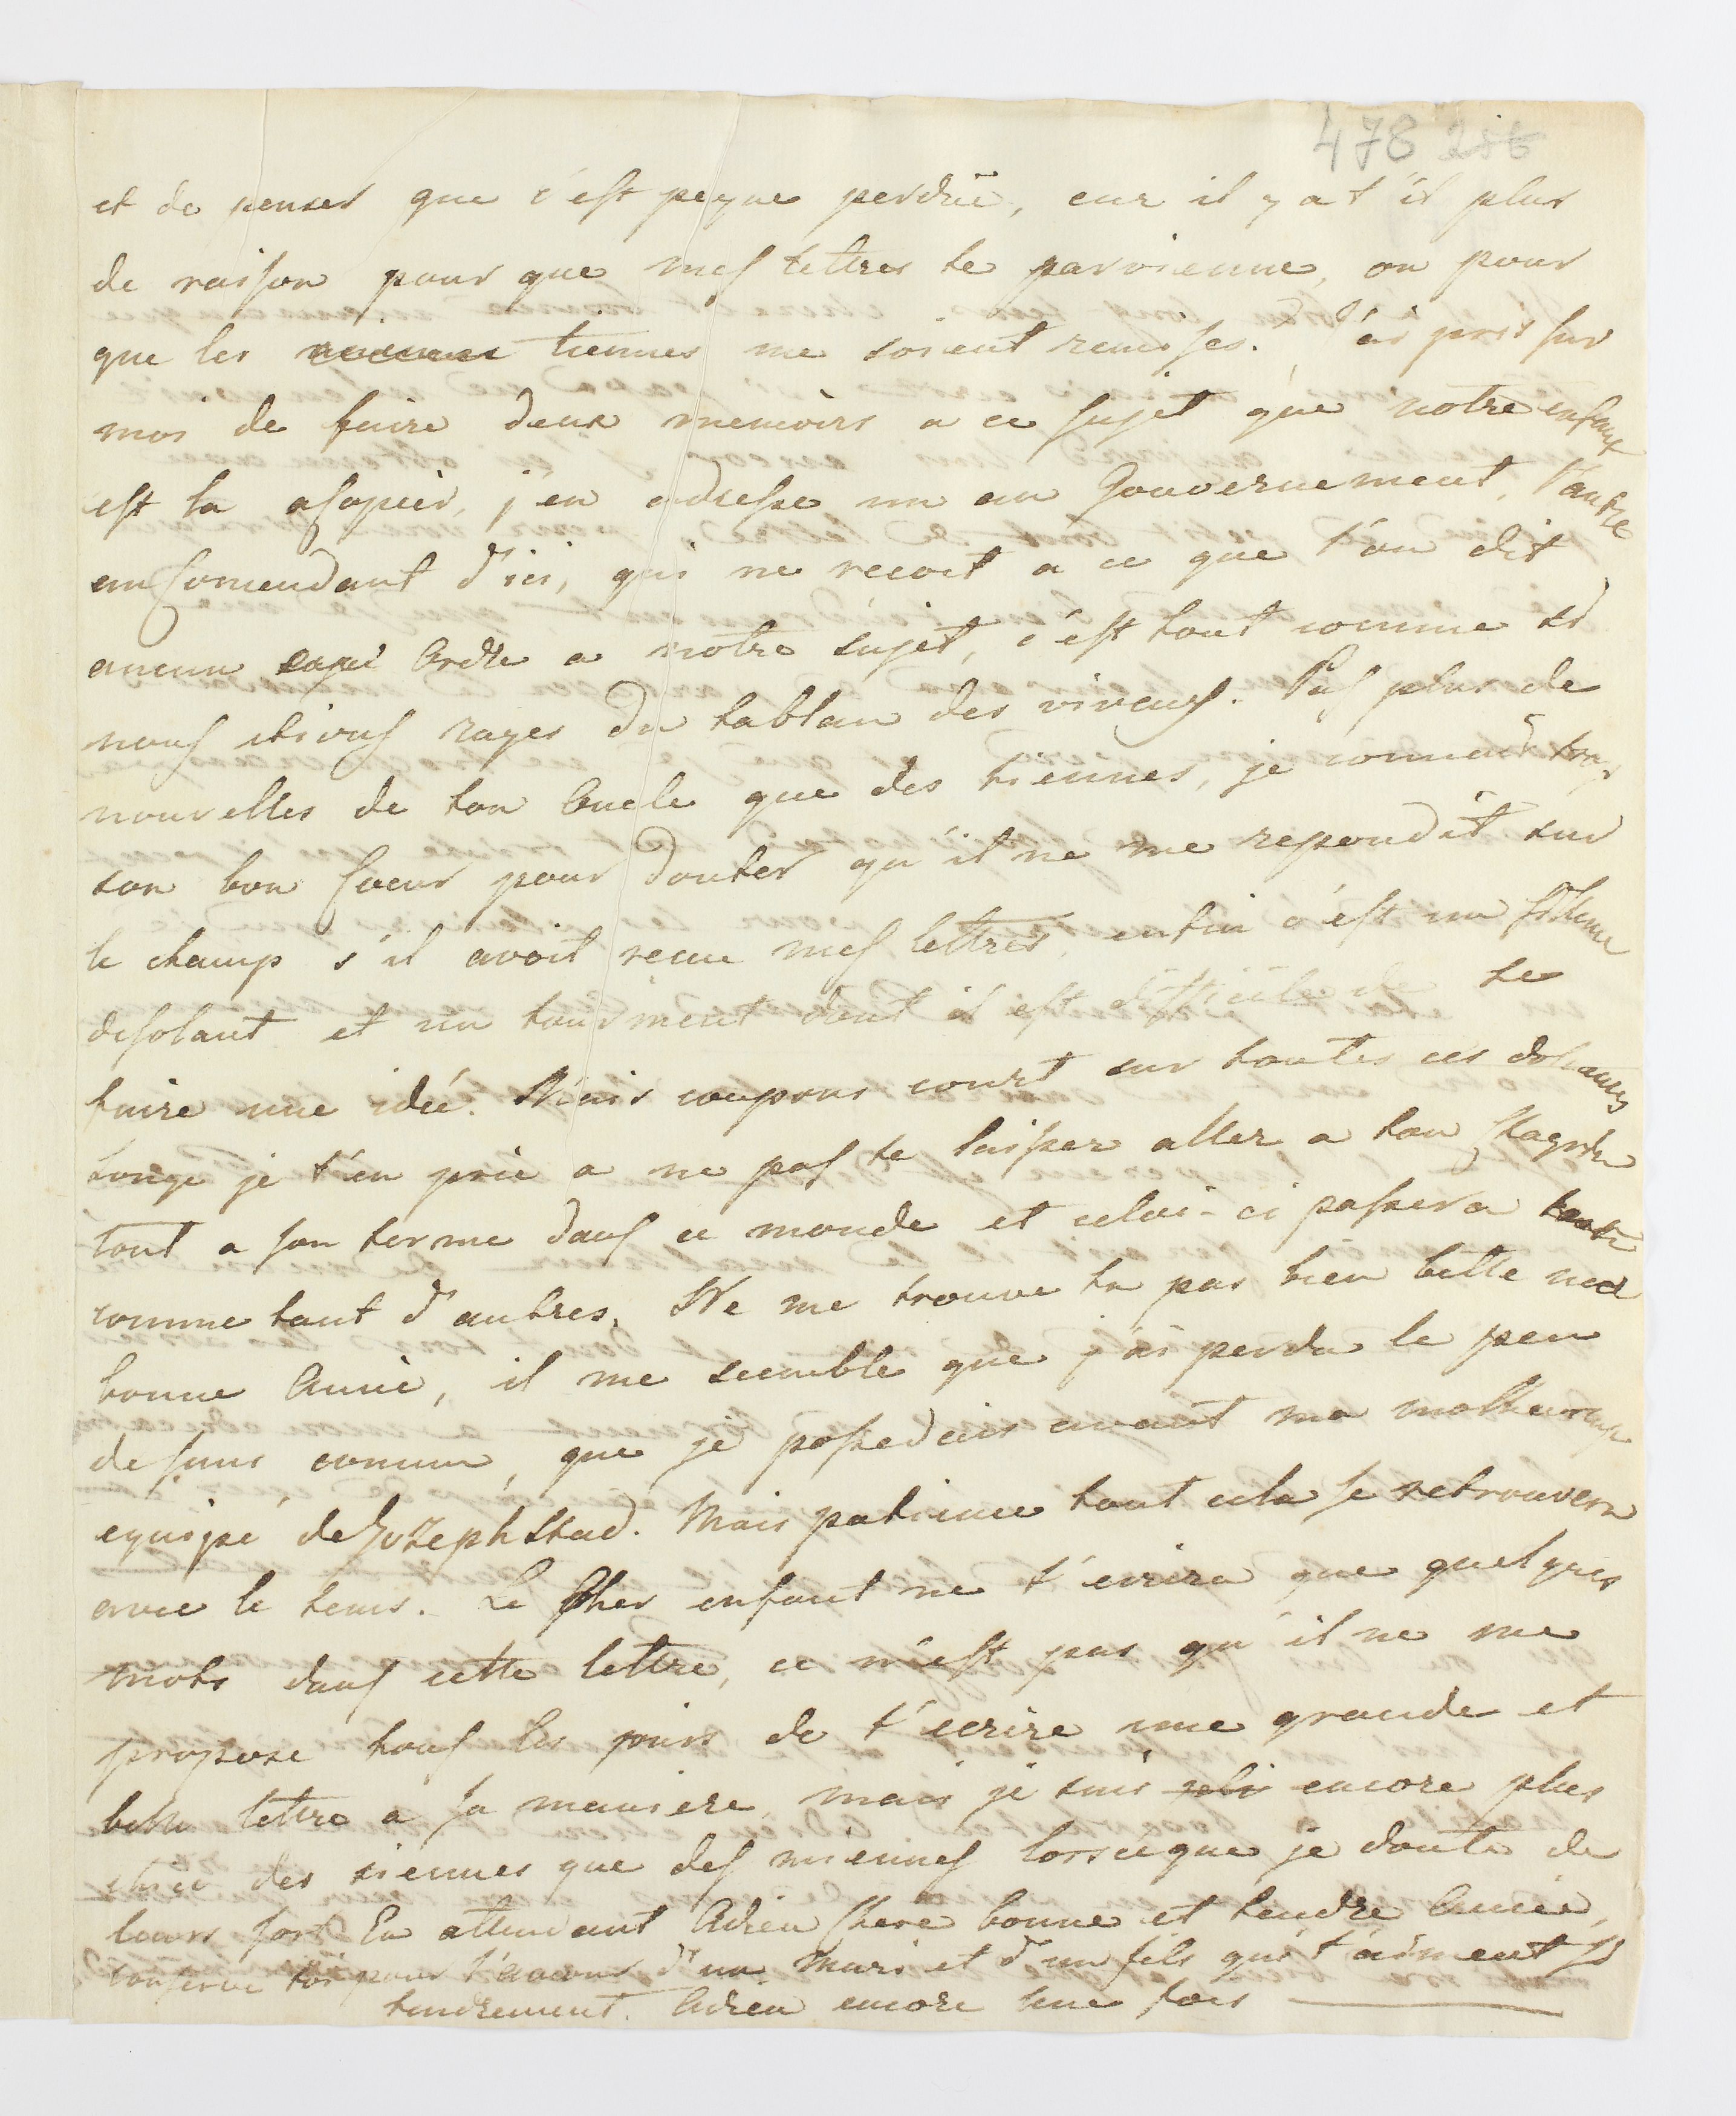 478 218
et de penser que c'est peyne perdüe, car il y a t'il plus
de raison pour que mes lettres te parvienne, ou pour
que les tiennes me soient remises. J'ai pris sur
moi de faire deux memoirs a ce sujet que notre enfant
est la a copier, j'en adresse un au Gouvernement, l'autre
au Comendant d'ici, qui ne recoit a ce que l'on dit
aucun Ordre a notre sujet, c'est tout comme si
nous etions rayes du tablau des vivens. Pas plus de
nouvelles de ton Oncle que des tiennes, je connais trop
son bon Coeur pour douter qu'il ne me repondit sur
le champ s'il avoit recue mes lettres, enfin c'est un sisteme
desolant et un tourment dont il est difficile de se
faire une idée. Mais coupons court sur toutes ces doleances
songe je t'en prie a ne pas te laisser aller a ton Chagrin
tout a son terme dans ce monde et celui-ci passera
comme tant d'autres. Ne me trouve tu pas bien bette ma
bonne Amie, il me semble que j'ai perdu le peu
de sens comun, que je possedais avant ma malheureuse
equipé de Jozephstad. Mais patience tout cela se retrouvera
avec le tems. Le Cher enfant ne t'ecrira que quelques
mots dans cette lettre, ce n'est pas qu'il ne me
propose tous les jours de t'ecrire une grande et
belle lettre a sa maniere, mais je suis encore plus
chice des siennes que des miennes lorsque je doute de
leurs sort En attendant Adieu Chere bonne et tendre Amie,
conserve toi pour l'amour d'un Mari et d'un fils qui t'aiment si
tendrement. Adieu encore une fois